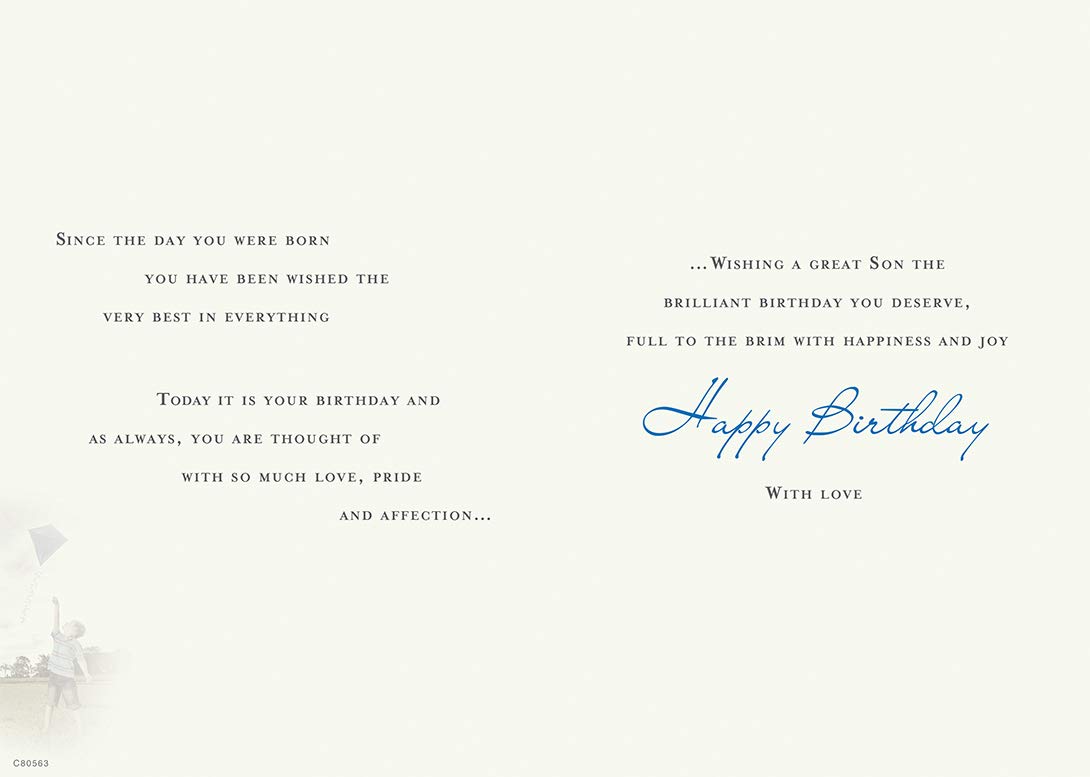 Since the day you were born
you have been wished the
very best in everything
Today it is your birthday and
as always, you are thought of
with so much love, pride
and affection...
...Wishing a great Son the
brilliant birthday you deserve,
full to the brim with happiness and joy
Happy Birthday
With love
C80563